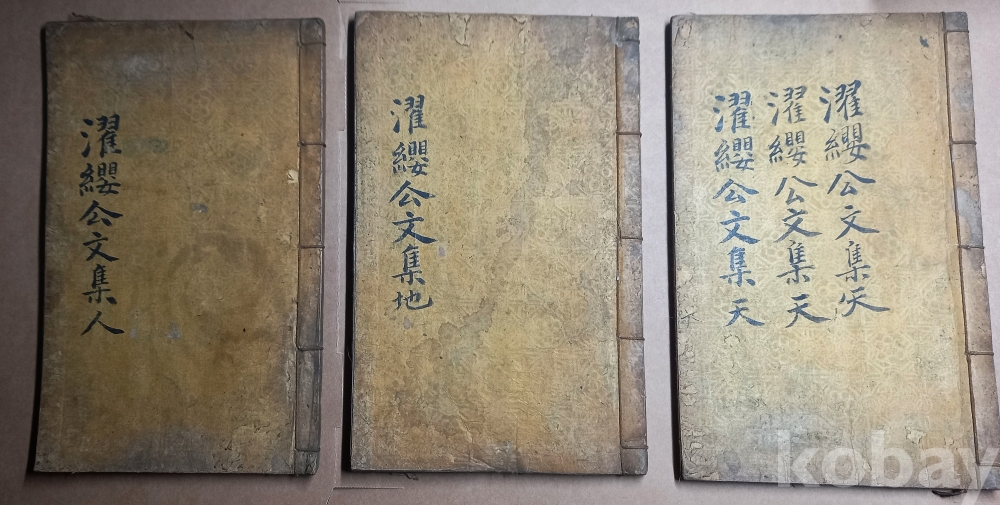 濯纓公文集人
濯纓公文集地
濯纓公文集天
濯纓公文集天
濯纓公文集天
kobay